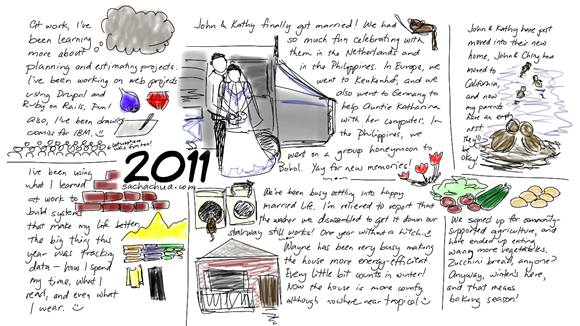 At work, I've
been learning
more about
planning and estimating projects.
I've been working on web projects
using Drupal and
Ruby on Rails. Fun!
Also, I've been drawing
comics for IBM.
Sketchnotes
was fun too!
John & Kathy finally got married! We had
so much fun celebrating with
them in the Netherlands and
in the Philippines. In Europe, we
went to Keukenhof, and we
also went to Germany to
help Auntie Katharina
with her computer. In
the Philippines, we
went on a group honeymoon to
Bohol. Yay for new memories!
John & Kathy have just
moved into their new
home, John & Ching had
moved to
California,
and now
my parents
have an empty
nest.
They'll
be
okay!
2011
sachachua.com
I've been using
what I learned
at work to
build systems
that make my life better.
The big thing this
year was tracking
data - how I spend
my time, what I
read, and even what
I wear.
We've been busy settling into happy
married life. I'm relieved to report that
the washer we disassembled to get it down our
stairway still works! One year without a hitch
Wayne has been very busy making
the house more energy-efficient.
Every little bit counts in winter!
Now the house is more comfy
although nowhere near tropical
We signed up for community-
supported agriculture, and
have ended up eating
way more vegetables.
Zucchini bread, anyone?
Anyway, winter's here,
and that means
baking season!